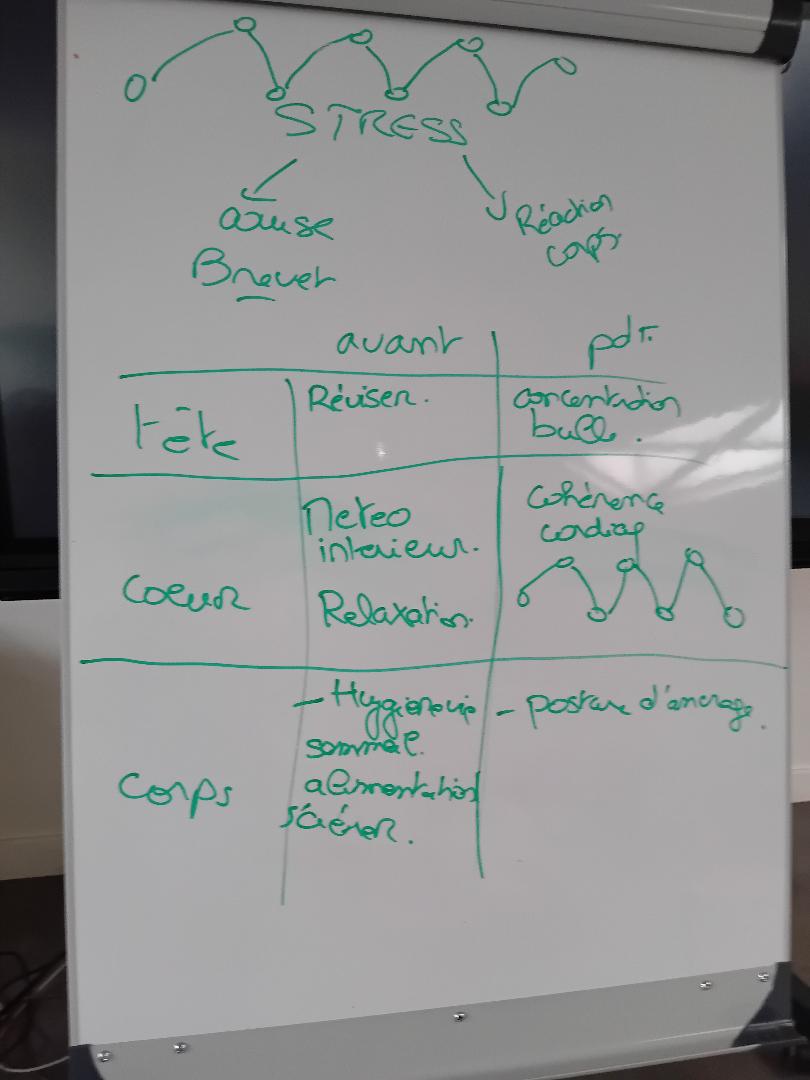 STRESS
cause
Brevet
Réaction
corps
avant
pdt.
tête
Réviser.
concentration
bulle.
coeur
Meteo
interieur.
Relaxation.
cohérence
cardiaq
corps
- Hygiène vie
sommeil.
alimentation
s'aérer.
- posture d'ancrage.